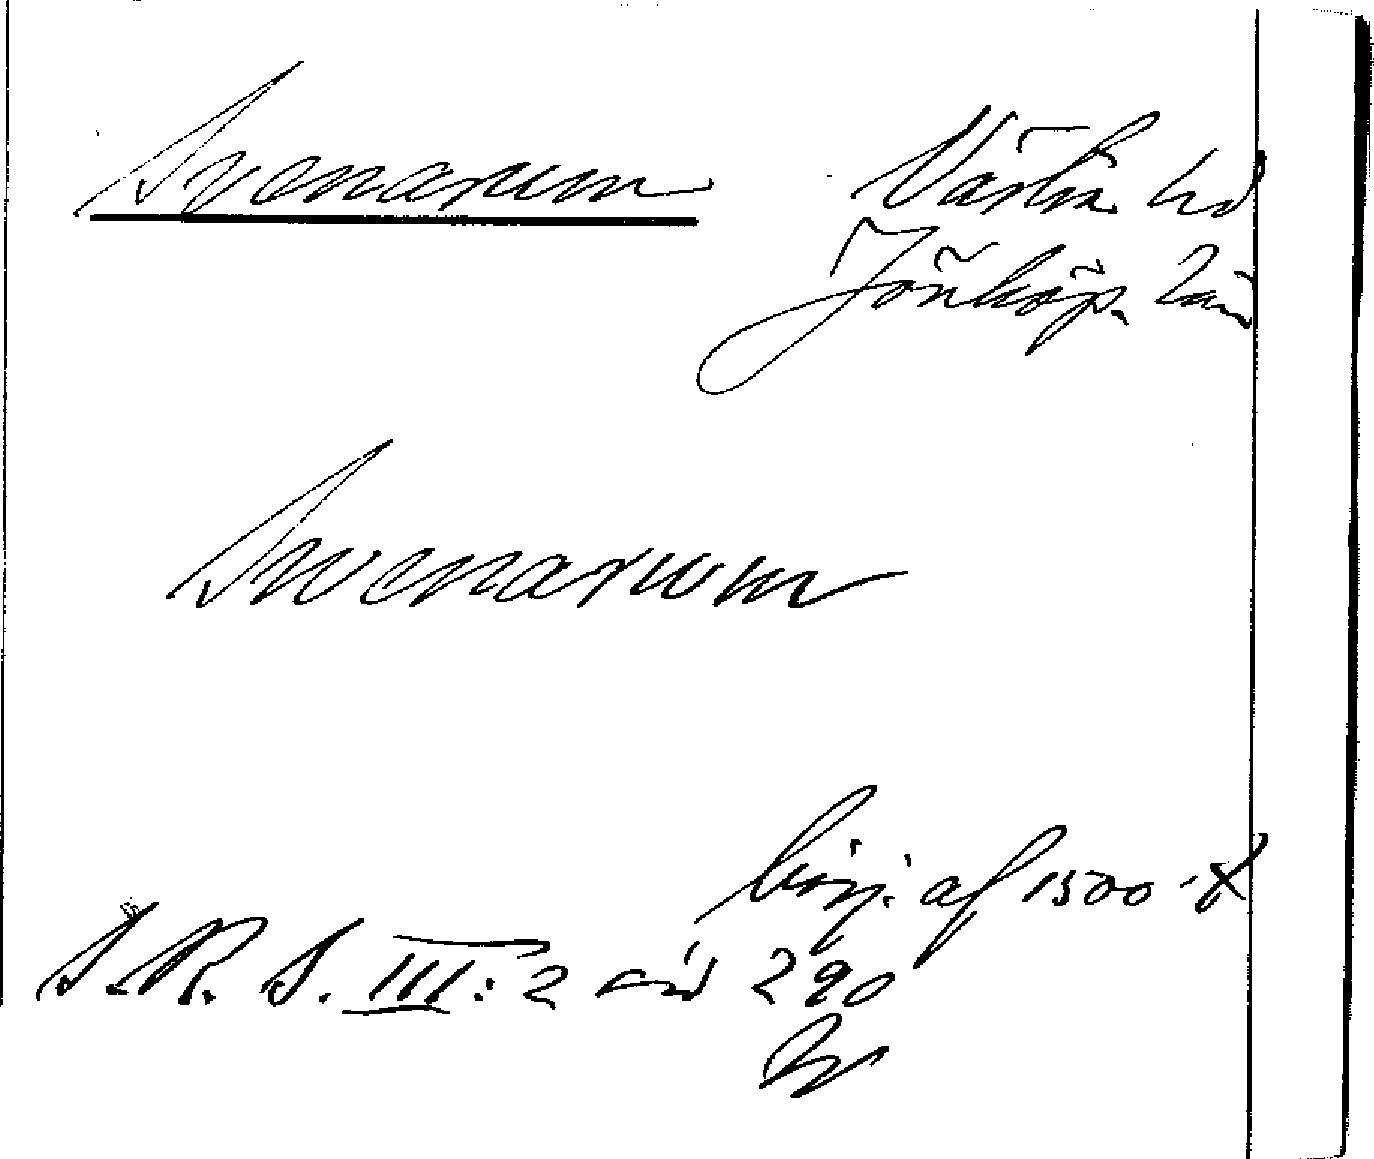 Svenarum
Västra hd
Jönköp. län
Swenarum
börj. af 1500-t
S.R.S. III:2 sid 290